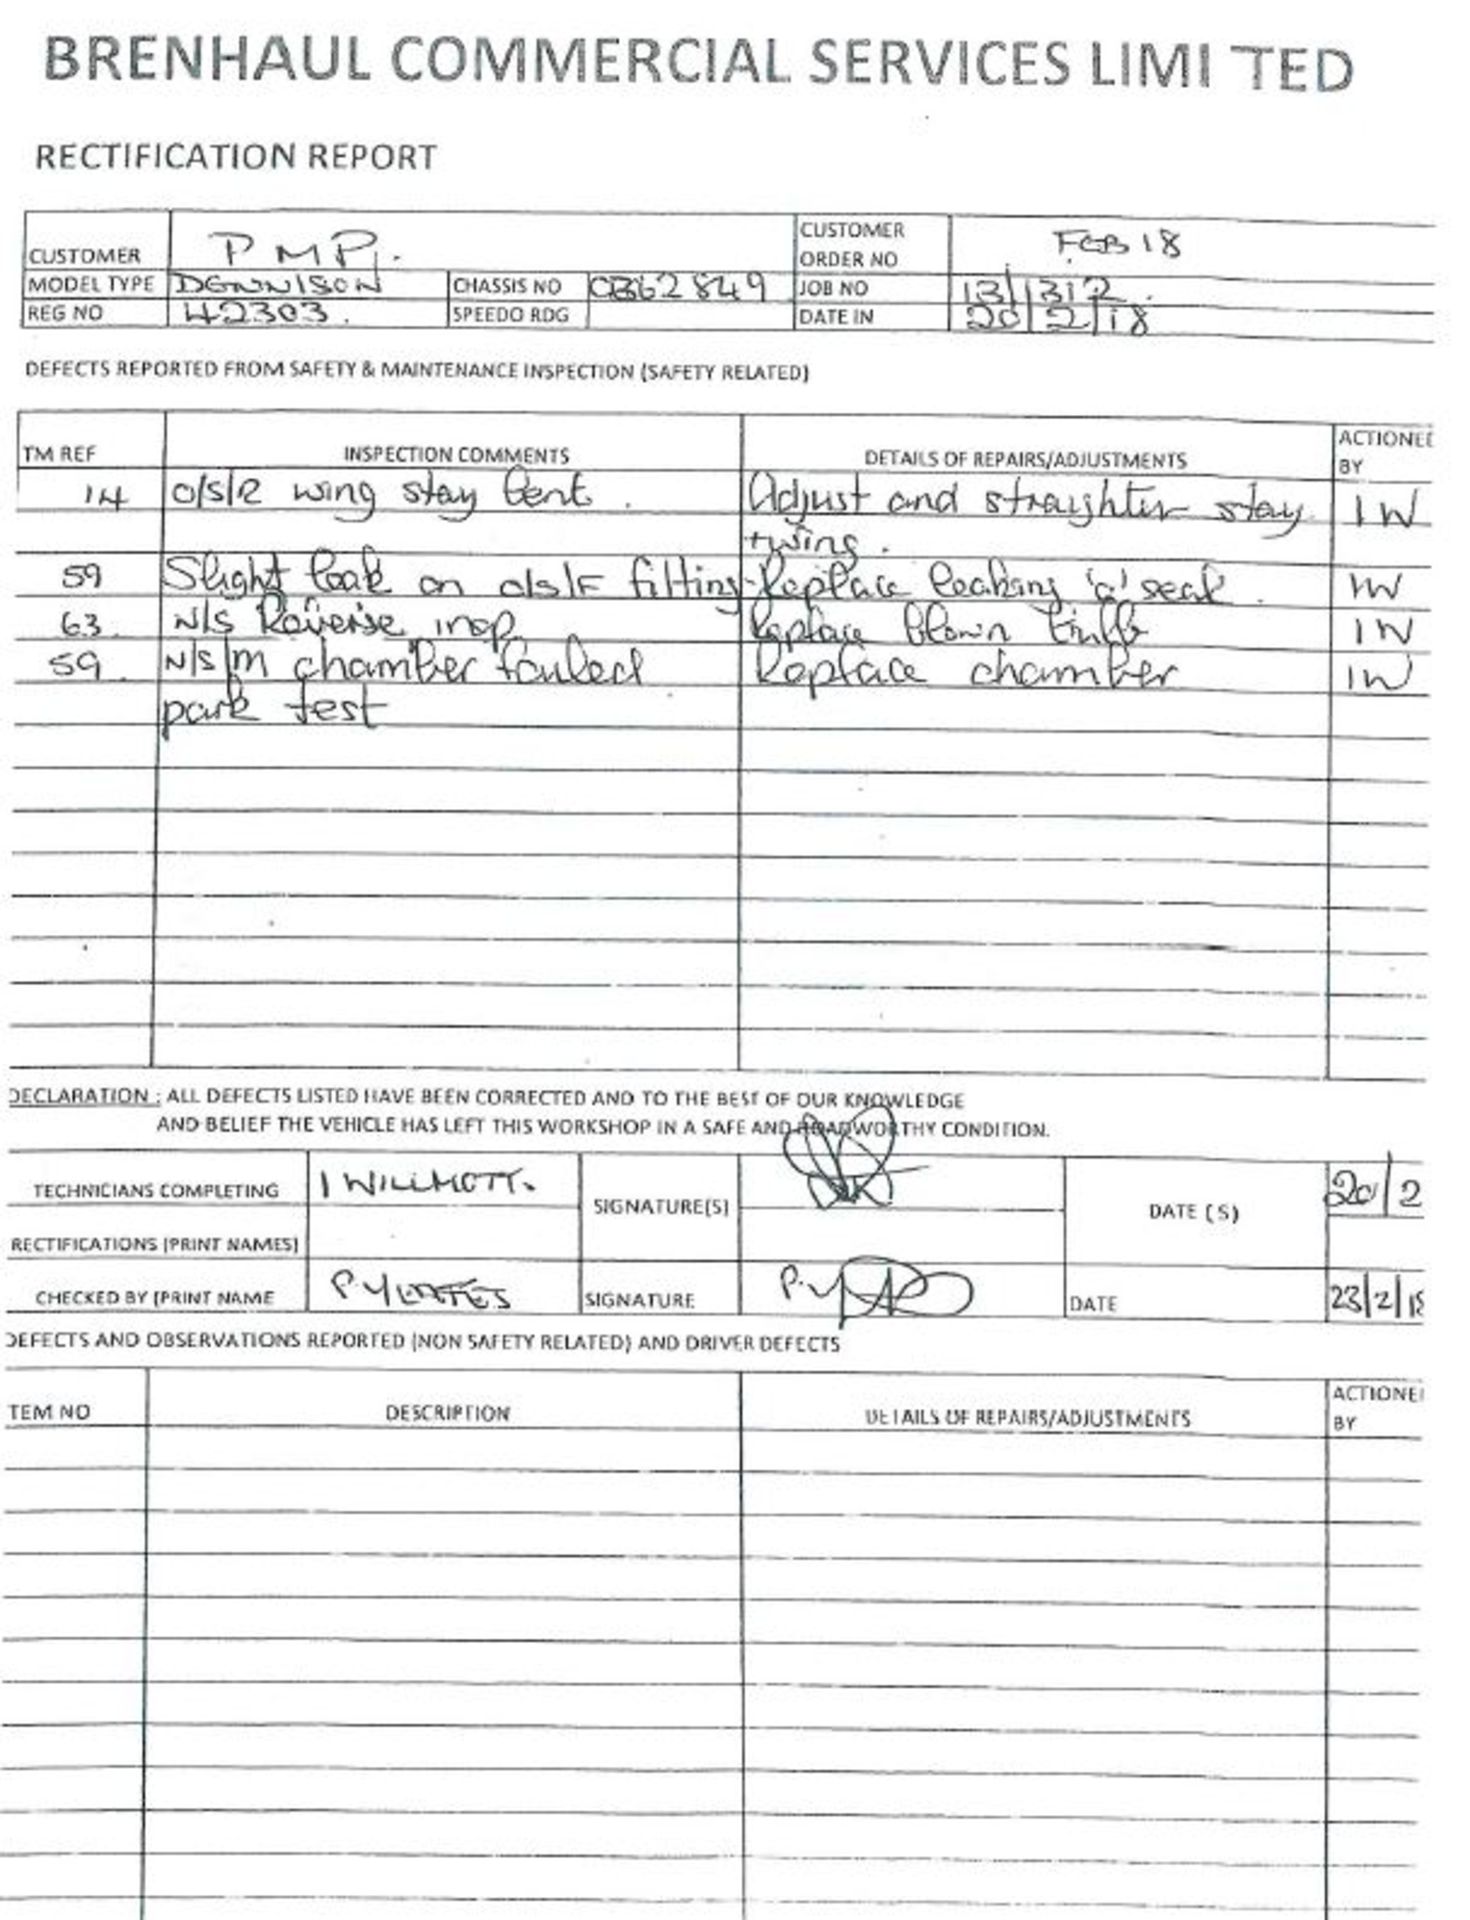 BRENHAUL COMMERCIAL SERVICES LIMI TED
RECTIFICATION REPORT
CUSTOMER P M P. CUSTOMER ORDER NO FEB 18
MODEL TYPE DENNISON CHASSIS NO CB62849 JOB NO 13/1312.
REG NO 42303. SPEEDO RDG DATE IN 20/2/18
DEFECTS REPORTED FROM SAFETY & MAINTENANCE INSPECTION (SAFETY RELATED)
TM REF INSPECTION COMMENTS DETAILS OF REPAIRS/ADJUSTMENTS ACTIONED BY
14 o/s/R wing stay bent. Adjust and straighten stay IW
+ wing.
59 Slight leak on o/s/F fitting. Replace leaking 'o' seal. IW
63. N/S Reverse inop Replace blown bulb IW
59. N/S/M chamber failed Replace chamber IW
park test
DECLARATION : ALL DEFECTS LISTED HAVE BEEN CORRECTED AND TO THE BEST OF OUR KNOWLEDGE
AND BELIEF THE VEHICLE HAS LEFT THIS WORKSHOP IN A SAFE AND ROADWORTHY CONDITION.
TECHNICIANS COMPLETING I WILLMOTT. SIGNATURE(S) DATE (S) 20/2
RECTIFICATIONS (PRINT NAMES)
CHECKED BY (PRINT NAME P. YLATES SIGNATURE DATE 23/2/18
DEFECTS AND OBSERVATIONS REPORTED (NON SAFETY RELATED) AND DRIVER DEFECTS
TEM NO DESCRIPTION DETAILS OF REPAIRS/ADJUSTMENTS ACTIONE BY